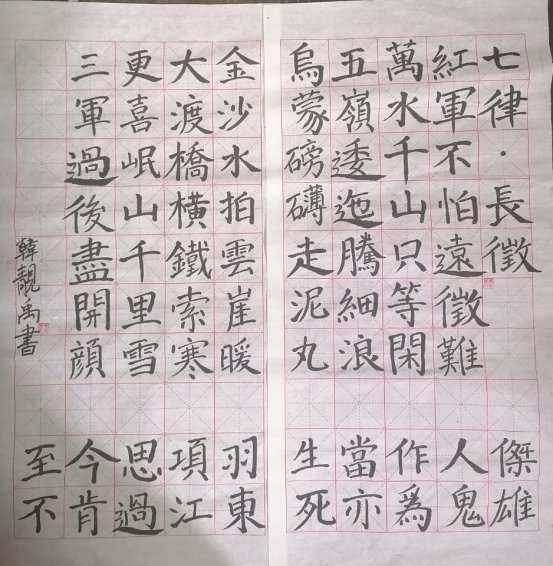 七律·長徵
紅軍不怕遠徵難
萬水千山只等閑
五嶺逶迤騰細浪
烏蒙磅礴走泥丸
金沙水拍雲崖暖
大渡橋橫鐵索寒
更喜岷山千里雪
三軍過後盡開顔
生當作人傑
死亦爲鬼雄
至今思項羽
不肯過江東
韓靚禹書